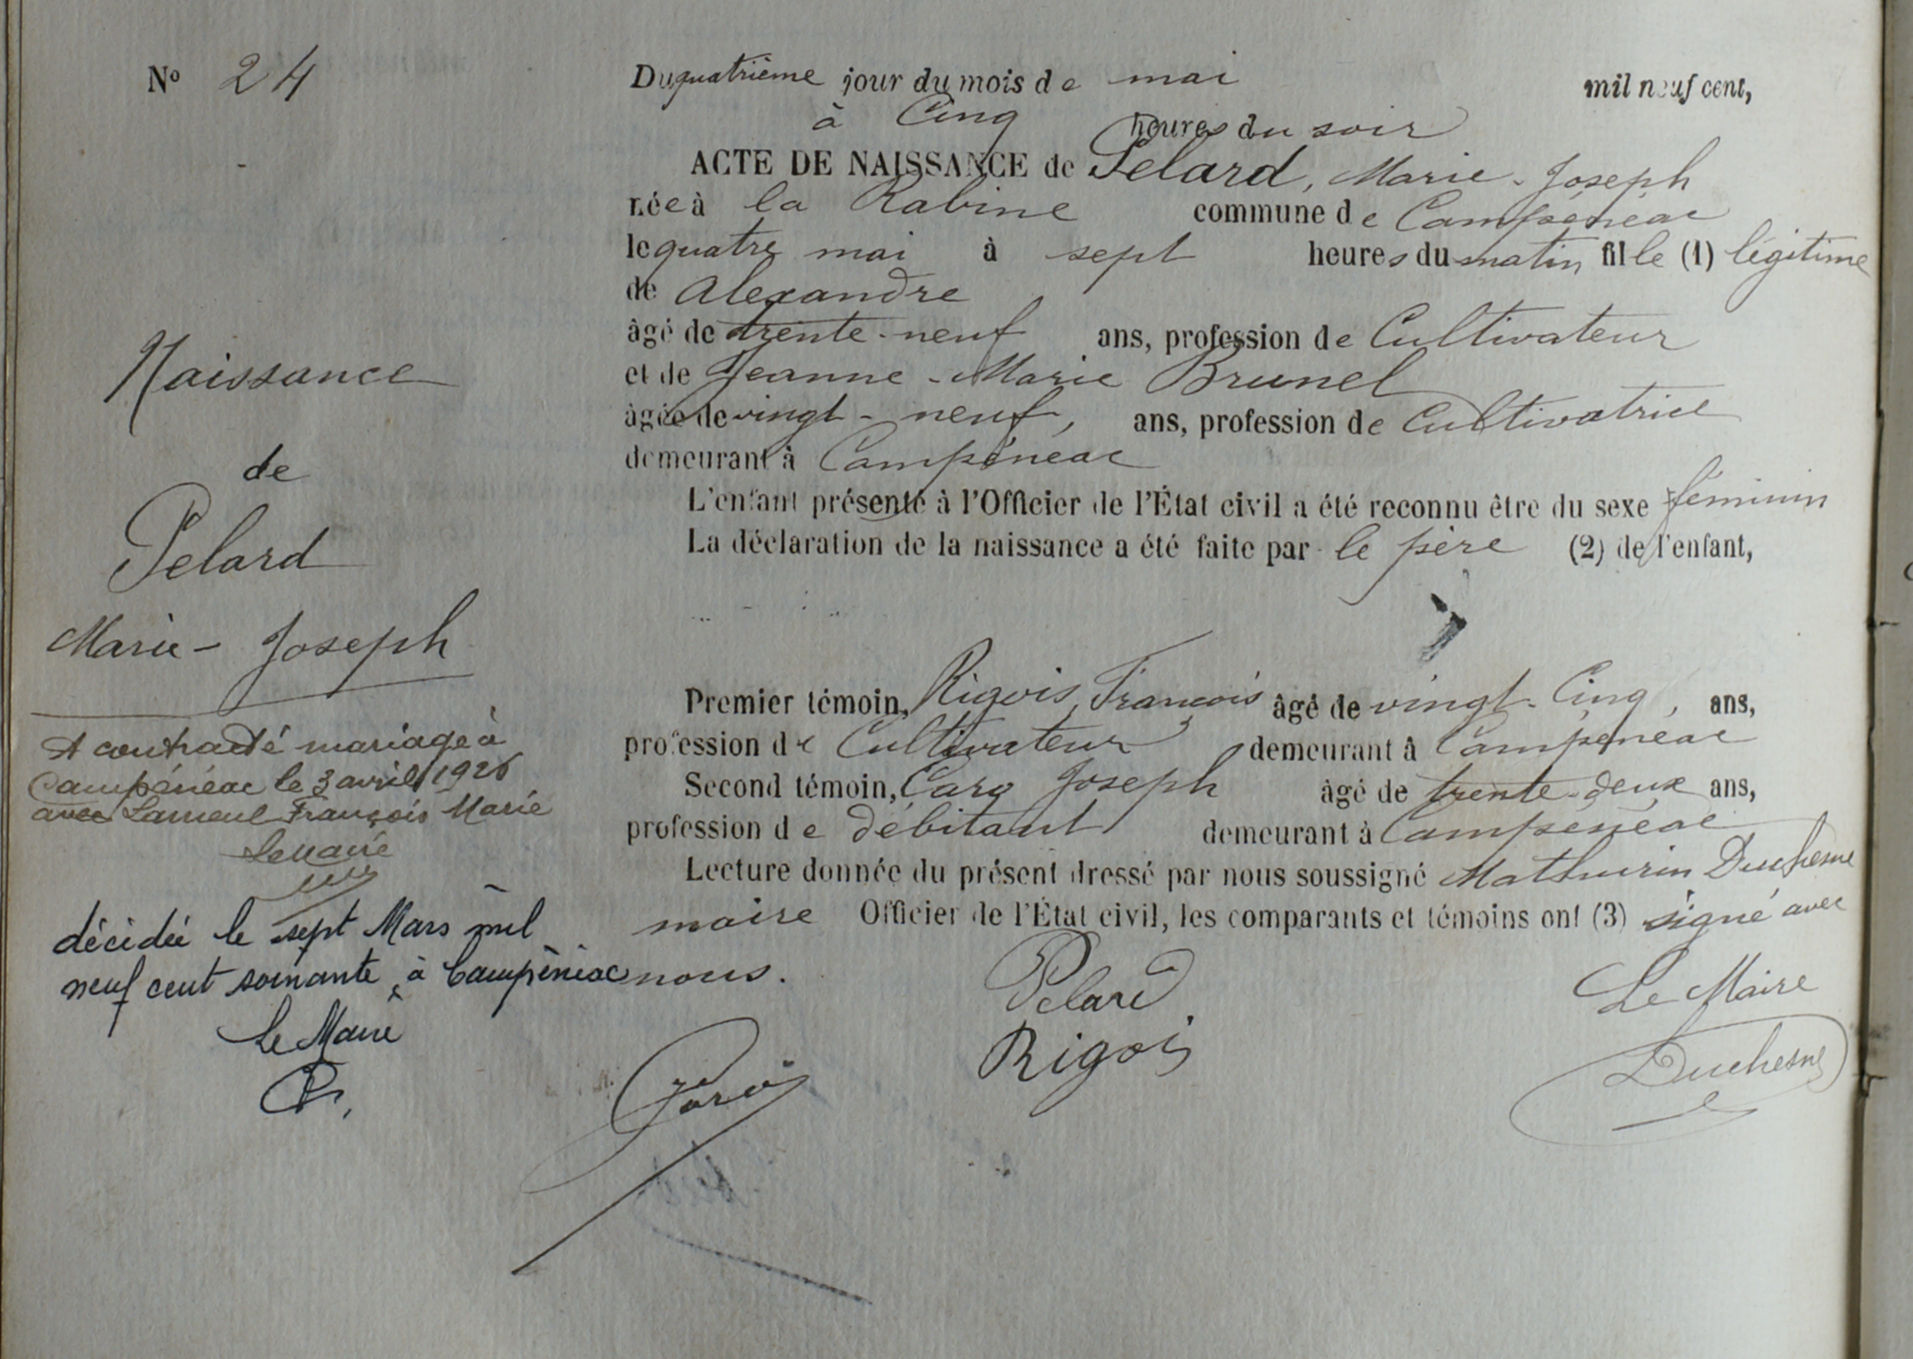 Nº 24
Naissance
de
Pelard
Marie-Joseph
A contracté mariage à
Campénéac le 3 avril 1926
avec Lameul François Marie
Le Maire
décédée le sept Mars mil
neuf cent soixante, à Campénéac
Le Maire
Du quatrième jour du mois de mai mil neuf cent,
à Cinq heures du soir
ACTE DE NAISSANCE de Pelard, Marie-Joseph
née à la Rabine commune de Campénéac
le quatre mai à sept heures du matin fille (1) légitime
de Alexandre
âgé de trente-neuf ans, profession de Cultivateur
et de Jeanne-Marie Brunel
âgée de vingt-neuf, ans, profession de Cultivatrice
demeurant à Campénéac
L'enfant présenté à l'Officier de l'État civil a été reconnu être du sexe féminin
La déclaration de la naissance a été faite par le père (2) de l'enfant,
Premier témoin, Rigois, François âgé de vingt-Cinq, ans,
profession de Cultivateur demeurant à Campénéac
Second témoin, Caro Joseph âgé de trente-deux ans,
profession de débitant demeurant à Campénéac
Lecture donnée du présent dressé par nous soussigné Mathurin Duchesne
maire Officier de l'État civil, les comparants et témoins ont (3) signé avec
nous.
Pelard
Le Maire
Rigois
Duchesne